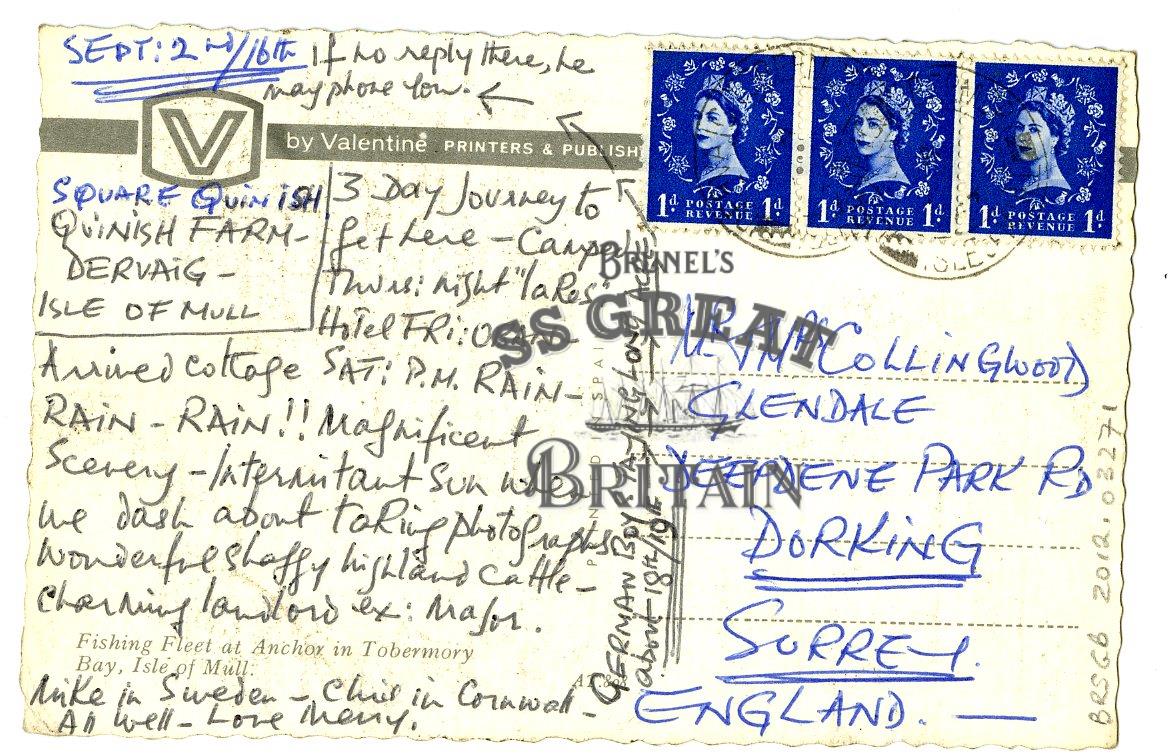 SEPT: 2nd/16th
If no reply there, he
may phone you. ←
by Valentine PRINTERS & PUBLISH
SQUARE QUINISH.
QUINISH FARM -
DERVAIG -
ISLE OF MULL
3 Day Journey to
get here - Camped
Thurs: night "lakes"
Hotel FRI: OBAN -
Arrived cottage SAT: P.M. RAIN -
RAIN - RAIN!! Magnificent
Scenery - Intermitant Sun when
we dash about taking photographs
wonderful shaggy highland cattle -
charming landlord ex: Major.
Fishing Fleet at Anchor in Tobermory
Bay, Isle of Mull.
Mike in Sweden - Chris in Cornwall -
All well - Love Merry.
GERMAN BOY LONG
about 18th/19th
1d POSTAGE REVENUE 1d
1d POSTAGE REVENUE 1d
1d POSTAGE REVENUE 1d
ISLE
COLLINGWOOD
GLENDALE
DEEPDENE PARK RD
DORKING
SURREY.
ENGLAND. —
BRSGB 2012.03271
BRUNEL'S
SS GREAT
BRITAIN